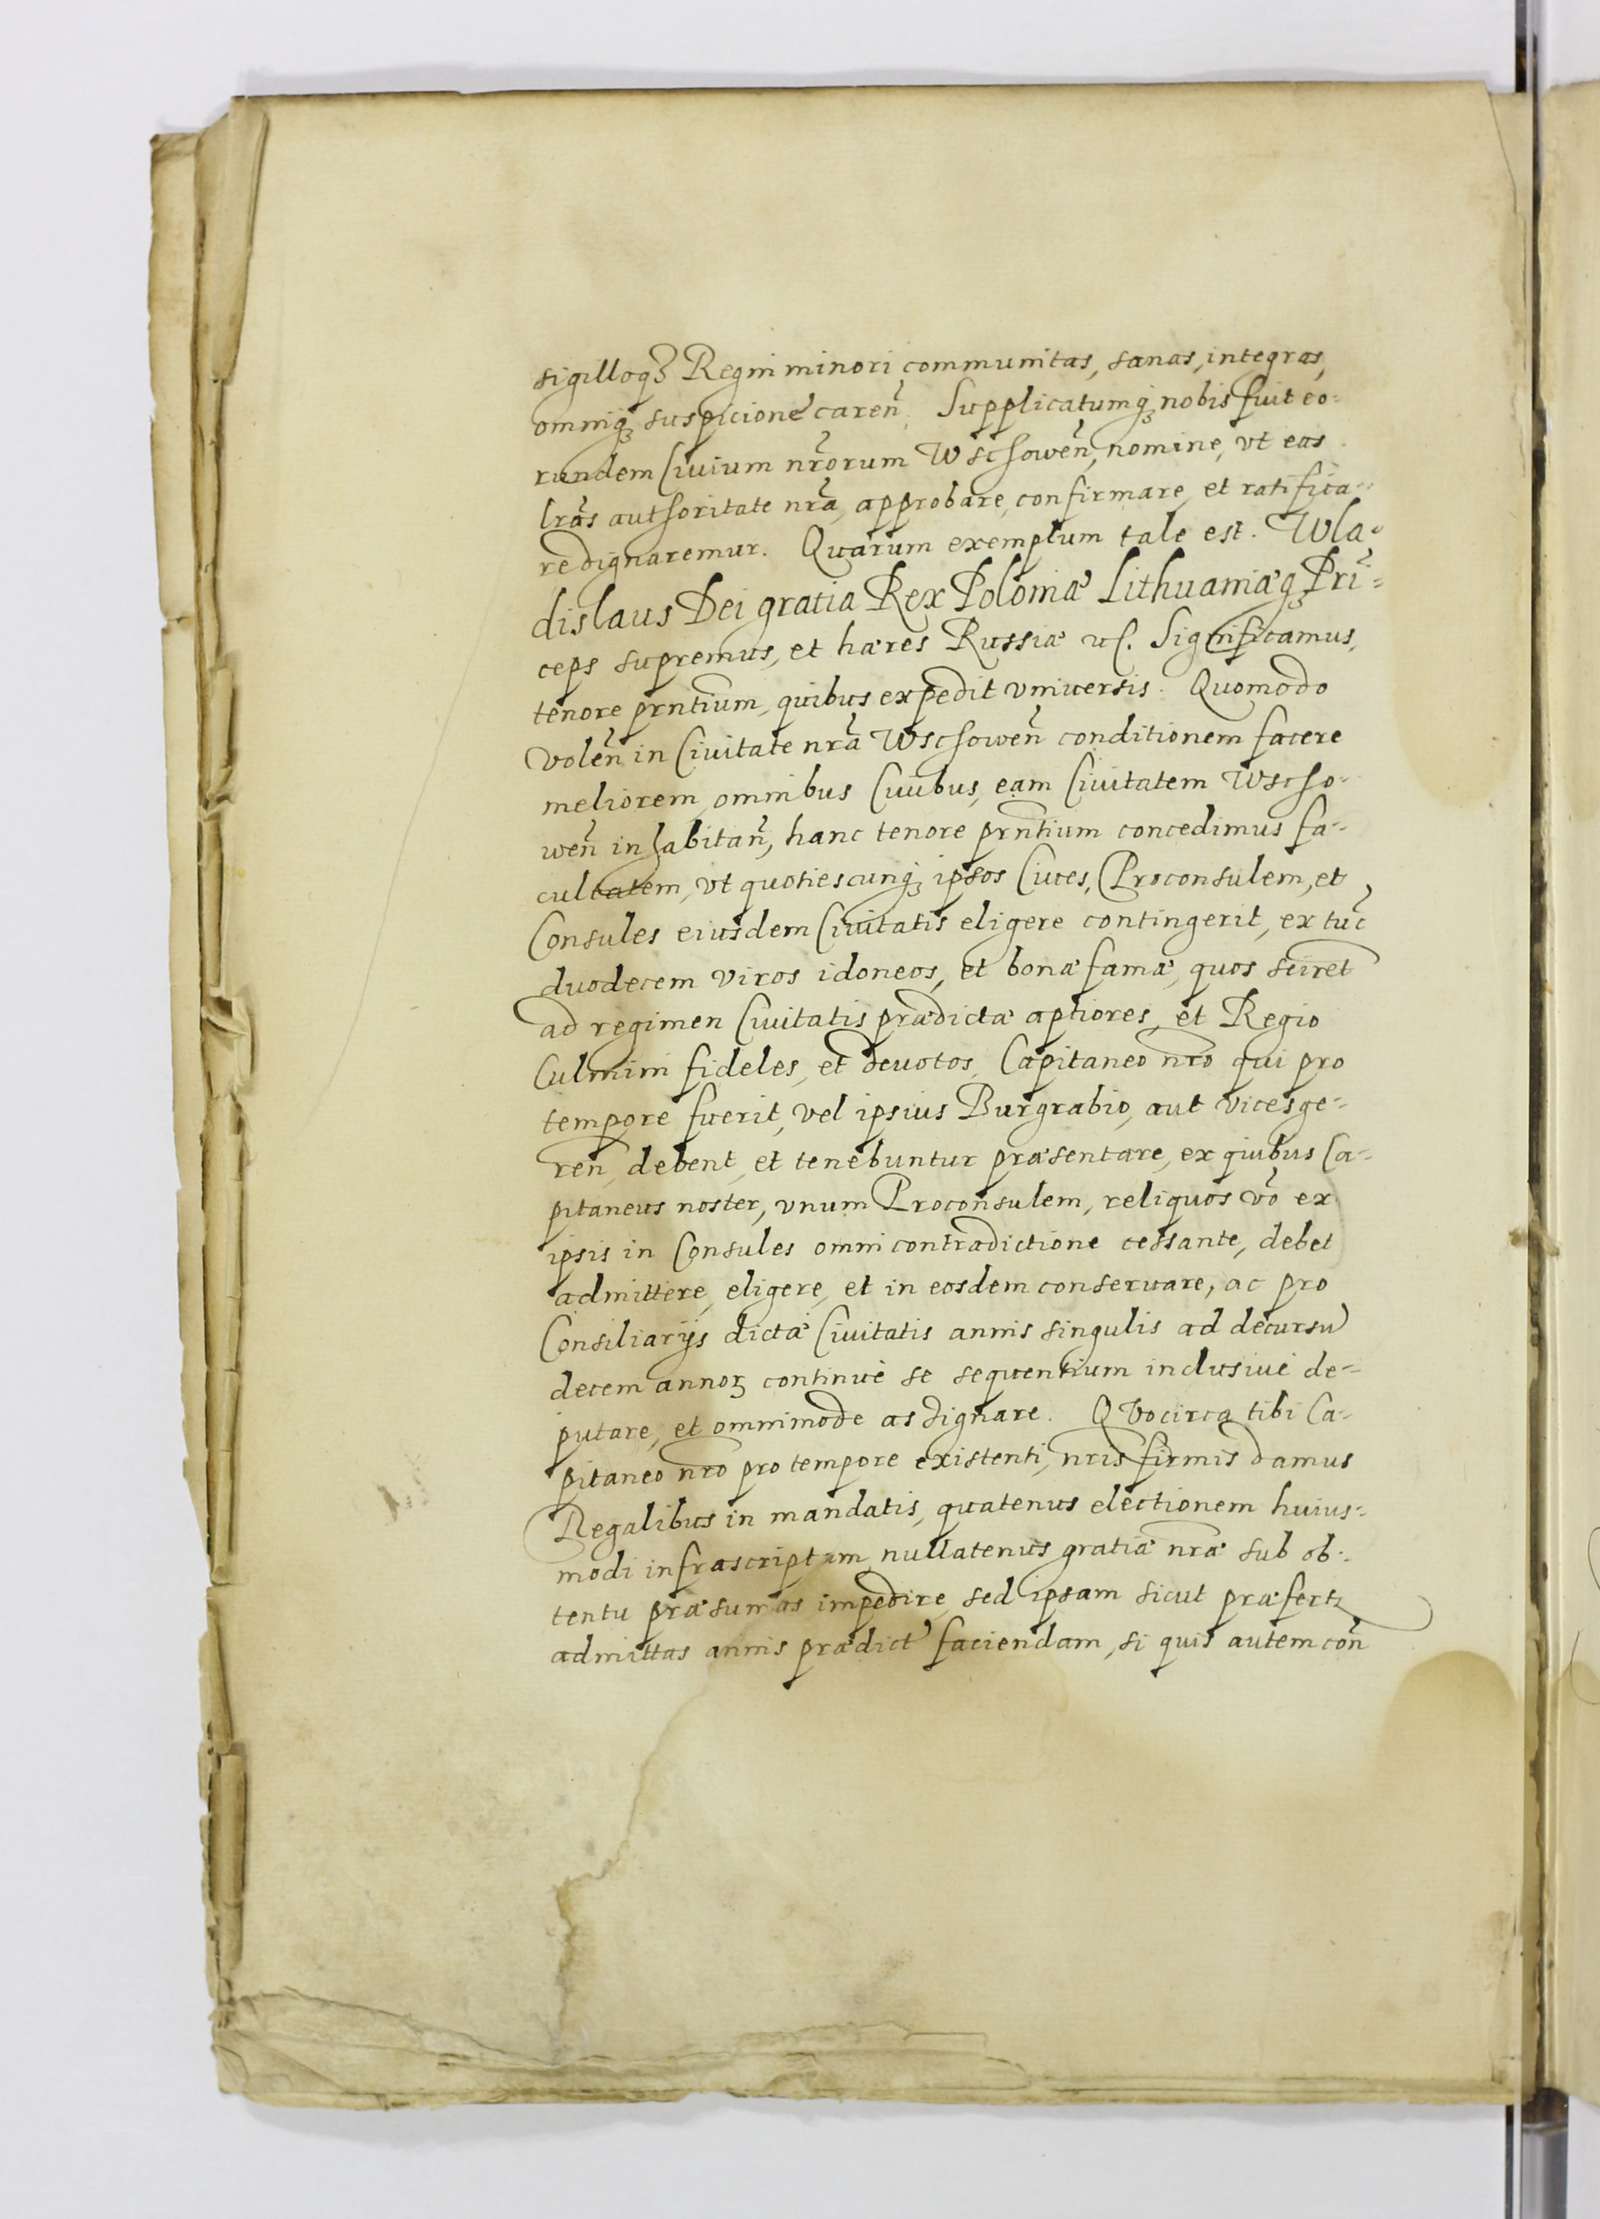 sigilloqꝫ Regni minori communitas, sanas, integras,
omniqꝫ suspicione caren̄. Supplicatumqꝫ nobis fuit eo-
rundem Civium nr̄orum Wschowen̄, nomine, vt eas
lrās authoritate nrā, approbare, confirmare, et ratifica-
re dignaremur. Quarum exemplum tale est. Wla-
dislaus Dei gratia Rex Poloniæ Lithuaniæqꝫ Prī-
ceps supremus, et hæres Russiæ uc. Significamus,
tenore prn̄tium, quibus expedit vniuersis. Quomodo
volen̄ in Ciuitate nrā Wschowen̄ conditionem facere
meliorem, omnibus Ciuibus, eam Ciuitatem Wscho-
wen̄ inhabitan̄, hanc tenore prn̄tium concedimus fa-
cultatem, vt quotiescunqꝫ ipsos Ciues, Proconsulem, et
Consules eiusdem Ciuitatis eligere contingerit, ex tūc
duodecem viros idoneos, et bonæ famæ, quos sciret
ad regimen Ciuitatis prædictæ aptiores, et Regio
Culmini fideles, et deuotos, Capitaneo nr̄o qui pro
tempore fuerit, vel ipsius Burgrabio, aut vicesge-
ren̄, debent, et tenebuntur præsentare, ex quibus Ca-
pitaneus noster, vnum Proconsulem, reliquos vō ex
ipsis in Consules omni contradictione cessante, debet
admittere, eligere, et in eosdem conseruare, ac pro
Consiliarijs dictæ Ciuitatis annis singulis ad decursū
decem annoꝝ continuè se sequentium inclusiuè de-
putare, et omnimode assignare. QVocirca tibi Ca-
pitaneo nr̄o pro tempore existenti, nr̄is firmis damus
Regalibus in mandatis, quatenus electionem huius-
modi infrascriptam nullatenus gratiæ nr̄æ sub ob-
tentu præsumas impedire, sed ipsam sicut præfertꝫ
admittas annis prædict' faciendam, si quis autem con̄